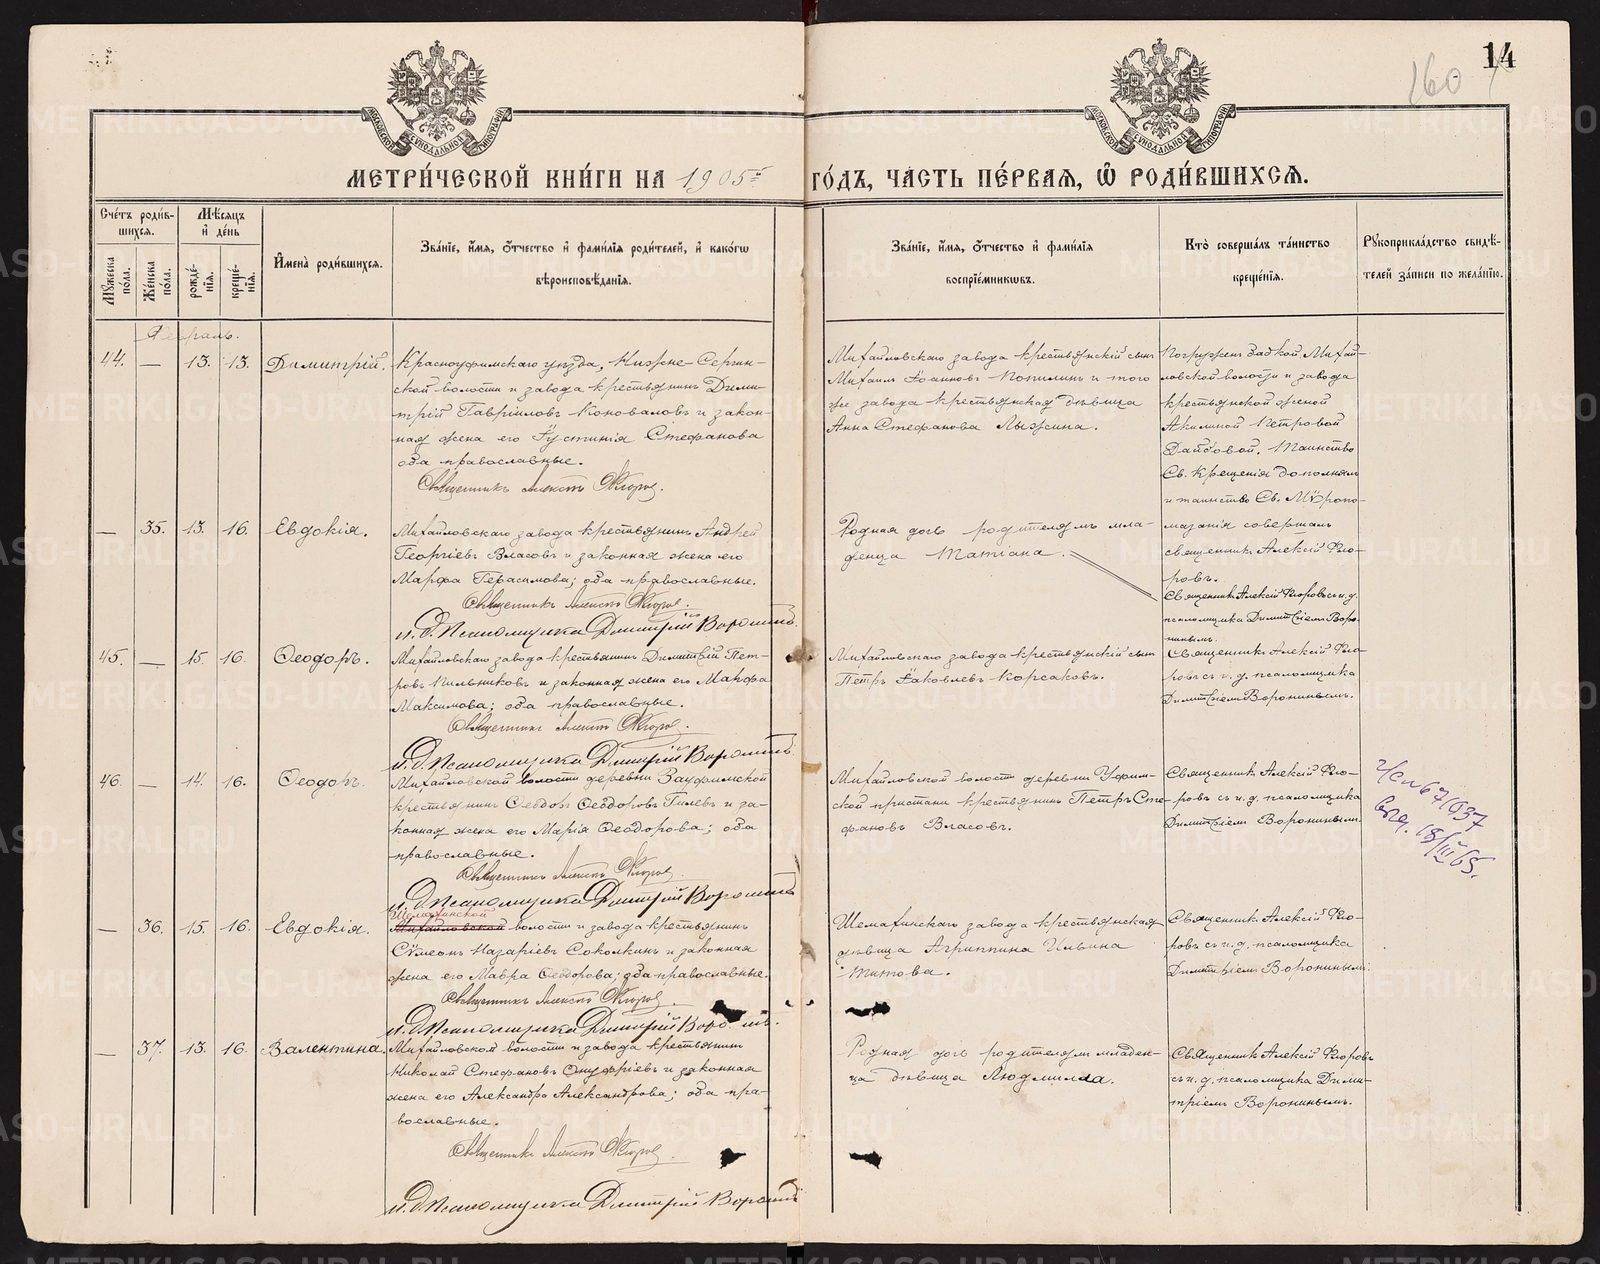 14
160
МОСКОВСКОЙ СѴНОДАЛЬНОЙ ТИПОГРАФІИ
МОСКОВСКОЙ СѴНОДАЛЬНОЙ ТИПОГРАФІИ
МЕТРИ́ЧЕСКОЙ КНИ́ГИ НА 1905й ГО́ДЪ, ЧА́СТЬ ПЕ́РВАЯ, Ѽ РОДИ́ВШИХСЯ.
Сче́тъ роди́в-
шихся.
Мꙋ́жеска по́ла.
Же́нска по́ла.
Мѣ́сяцъ
и҆ де́нь
рожде́-
нїя.
креще́-
нїя.
И҆мена̀ роди́вшихся.
Зва́нїе, и҆́мя, ѻ҆́тчество и҆ фами́лїя роди́телей, и҆ како́гѡ
вѣроисповѣ́данїя.
Зва́нїе, и҆́мя, ѻ҆́тчество и҆ фами́лїя
воспрїе́мникѡвъ.
Кто̀ соверша́лъ та́инство
креще́нїя.
Рꙋкоприкла́дство свидѣ́-
телей за́писи по жела́нїю.
Февраль.
44. — 13. 13. Димитрій.
Красноуфимскаго уѣзда, Нижне-Сергин-
ской волости и завода крестьянинъ Дими-
трій Гавріиловъ Коноваловъ и закон-
ная жена его Іустинія Стефанова
оба православные.
Священникъ Алексѣй Флоровъ.
Михайловскаго завода крестьянскій сынъ
Михаилъ Іоанновъ Копилинъ и того
же завода крестьянская дѣвица
Анна Стефанова Лыжина.
Погруженъ бабкой Михай-
ловской волости и завода
крестьянской женой
Акилиной Петровой
Таинство
Св. Крещенія дополнялъ
и таинство Св. Мѵропо-
мазанія совершалъ
священникъ Алексій Фло-
ровъ.
— 35. 13. 16. Евдокія.
Михайловскаго завода крестьянинъ Андрей
Георгіевъ Власовъ и законная жена его
Марфа Герасимова; оба православные.
Священникъ Алексѣй Флоровъ.
и. д. Псаломщика Димитрій Воронинъ.
Родная дочь родителямъ мла-
денца Татіана.
Священникъ Алексій Флоровъ съ и. д.
псаломщика Димитріемъ Воро-
нинымъ.
45. — 15. 16. Ѳеодоръ.
Михайловскаго завода крестьянинъ Димитрій Пет-
ровъ Пильниковъ и законная жена его Марфа
Максимова; оба православные.
Священникъ Алексѣй Флоровъ.
и. д. Псаломщика Димитрій Воронинъ
Михайловскаго завода крестьянскій сынъ
Петръ Іаковлевъ Корсаковъ.
Священникъ Алексій Фло-
ровъ съ и. д. псаломщика
Димитріемъ Воронинымъ.
46. — 14. 16. Ѳеодоръ.
Михайловской волости деревни Зауфимской
крестьянинъ Ѳеодоръ Ѳеодоровъ Гилевъ и за-
конная жена его Марія Ѳеодорова; оба
православные.
Священникъ Алексѣй Флоровъ.
и. д. Псаломщика Димитрій Воронинъ
Михайловской волости деревни Уфим-
ской пристани крестьянинъ Петръ Сте-
фановъ Власовъ.
Священникъ Алексій Фло-
ровъ съ и. д. псаломщика
Димитріемъ Воронинымъ.
671037
выд. 18/III 65.
— 36. 15. 16. Евдокія.
Шемахинской
Михайловской волости и завода крестьянинъ
Сѵмеонъ Назаріевъ Соколкинъ и законная
жена его Мавра Ѳеодорова; оба православные.
Священникъ Алексѣй Флоровъ.
и. д. Псаломщика Димитрій Воронинъ.
Шемахинскаго завода крестьянская
дѣвица Агриппина Ильина
Титова.
Священникъ Алексій Фло-
ровъ съ и. д. псаломщика
Димитріемъ Воронинымъ.
— 37. 13. 16. Валентина.
Михайловской волости и завода крестьянинъ
Николай Стефановъ Онуфріевъ и законная
жена его Александра Александрова; оба пра-
вославные.
Священникъ Алексѣй Флоровъ.
и. д. Псаломщика Димитрій Воронинъ
Родная дочь родителямъ младен-
ца дѣвица Людмилла.
Священникъ Алексій Флоровъ
съ и. д. псаломщика Дими-
тріемъ Воронинымъ.
METRIKI.GASO-URAL.RU